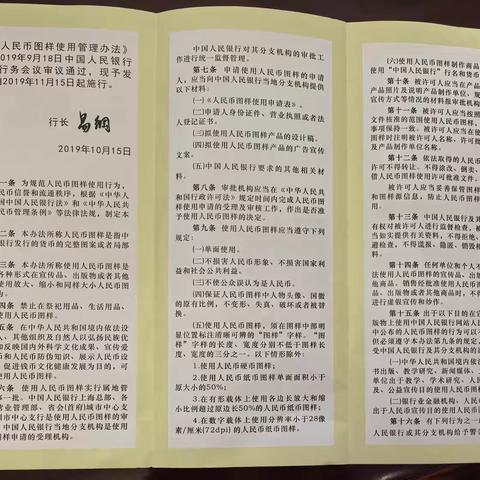 人民币图样使用管理办法》
019年9月18日中国人民银行
行务会议审议通过，现予发
2019年11月15日起施行。
行长 易纲
2019年10月15日
一条 为规范人民币图样使用行为，
民币信誉和流通秩序，根据《中华人
国中国人民银行法》和《中华人民共
民币管理条例》等法律法规，制定本
二条 本办法所称人民币图样是指中
银行发行的货币的完整图案或者局部
三条 本办法所称使用人民币图样是
各种形式在宣传品、出版物或者其他
使用放大、缩小和同样大小人民币图
为。
四条 禁止在祭祀用品、生活用品、
使用人民币图样。
五条 在中华人民共和国境内依法设
人、其他组织及自然人以弘扬民族优
和反映国内外科学文化成果、宣传爱
币和人民币防伪知识、展示人民币设
促进钱币文化健康发展为目的，可
使用人民币图样。
六条 使用人民币图样实行属地管
事一批。中国人民银行上海总部、各
营业管理部、省会(首府)城市中心支
城市中心支行是使用人民币图样的审
中国人民银行当地分支机构是使用
图样申请的受理机构。
中国人民银行对其分支机构的审批工
作进行统一监督管理。
第七条 申请使用人民币图样的申请
人，应当向中国人民银行当地分支机构提供
以下材料：
(一)《人民币图样使用申请表》。
(二)申请人身份证件、营业执照或者法
人登记证书。
(三)拟使用人民币图样产品的设计稿。
(四)拟使用人民币图样产品的广告宣传
文案。
(五)中国人民银行要求的其他相关材
料。
第八条 审批机构应当在《中华人民共
和国行政许可法》规定时间内完成人民币图样
使用申请的受理及审核工作，作出是否准
予使用人民币图样的决定。
第九条 使用人民币图样应当遵守下列
规定：
(一)单面使用。
(二)不损害人民币形象、不损害国家利
益和社会公共利益。
(三)不使公众误认为是人民币。
(四)保证人民币图样中人物头像、国徽
的原有比例，不变形、失真、破坏或者被替
换。
(五)使用人民币图样，须在图样中部明
显位置标注清晰可辨的“图样”字样。“图
样”字样的长度、宽度分别不低于图样长
度、宽度的三分之一。以下情形除外：
1.使用人民币硬币图样；
2.使用人民币纸币图样单面面积小于
原大小的50%；
3.在有形载体上使用各边长放大和缩
小比例超过原边长50%的人民币纸币图样；
4.在数字载体上使用分辨率小于28像
素/厘米(72dpi)的人民币纸币图样。
(六)使用人民币图样制作商品
使用“中国人民银行”行名和货币
第十条 被许可人应当在产品
产品照片及说明产品制作单位、规
宣传方式等情况的材料报审批机构
第十一条 被许可人应当按照
文件核准的范围使用人民币图样，
事项保持一致。被许可人应当在与
币图样产品中明示被许可人名称
时间及产品制作单位名称。
第十二条 依法取得的人民币
许可不得转让、不得涂改、倒卖、
借使用人民币图样批准文件。
被许可人应当妥善保管图样
和图样源信息，防止人民币图样
出。
第十三条 中国人民银行及其
有权对被许可人进行监督检查，被
当如实提供有关资料，不得拒绝
避检查，不得谎报、隐匿、销毁相
料。
第十四条 任何单位和个人不
法使用人民币图样的宣传品、出版
他商品。销售经批准使用人民币图
品、出版物或者其他商品时，不得
进行虚假宣传和炒作。
第十五条 出于以下目的在宣
版物上使用中国人民银行网站人
中公布的人民币图样的行为无须
但必须遵守本办法第九条的规定，
受中国人民银行及其分支机构的监
(一)中华人民共和国境内依
书出版、教学研究、新闻媒体、文
单位出于教学、学术研究、人民
及、公益宣传目的使用人民币图样
(二)银行业金融机构、人民
公益宣传目的使用人民币图样。
第十六条 有下列行为之一的
人民银行或其分支机构给予警告